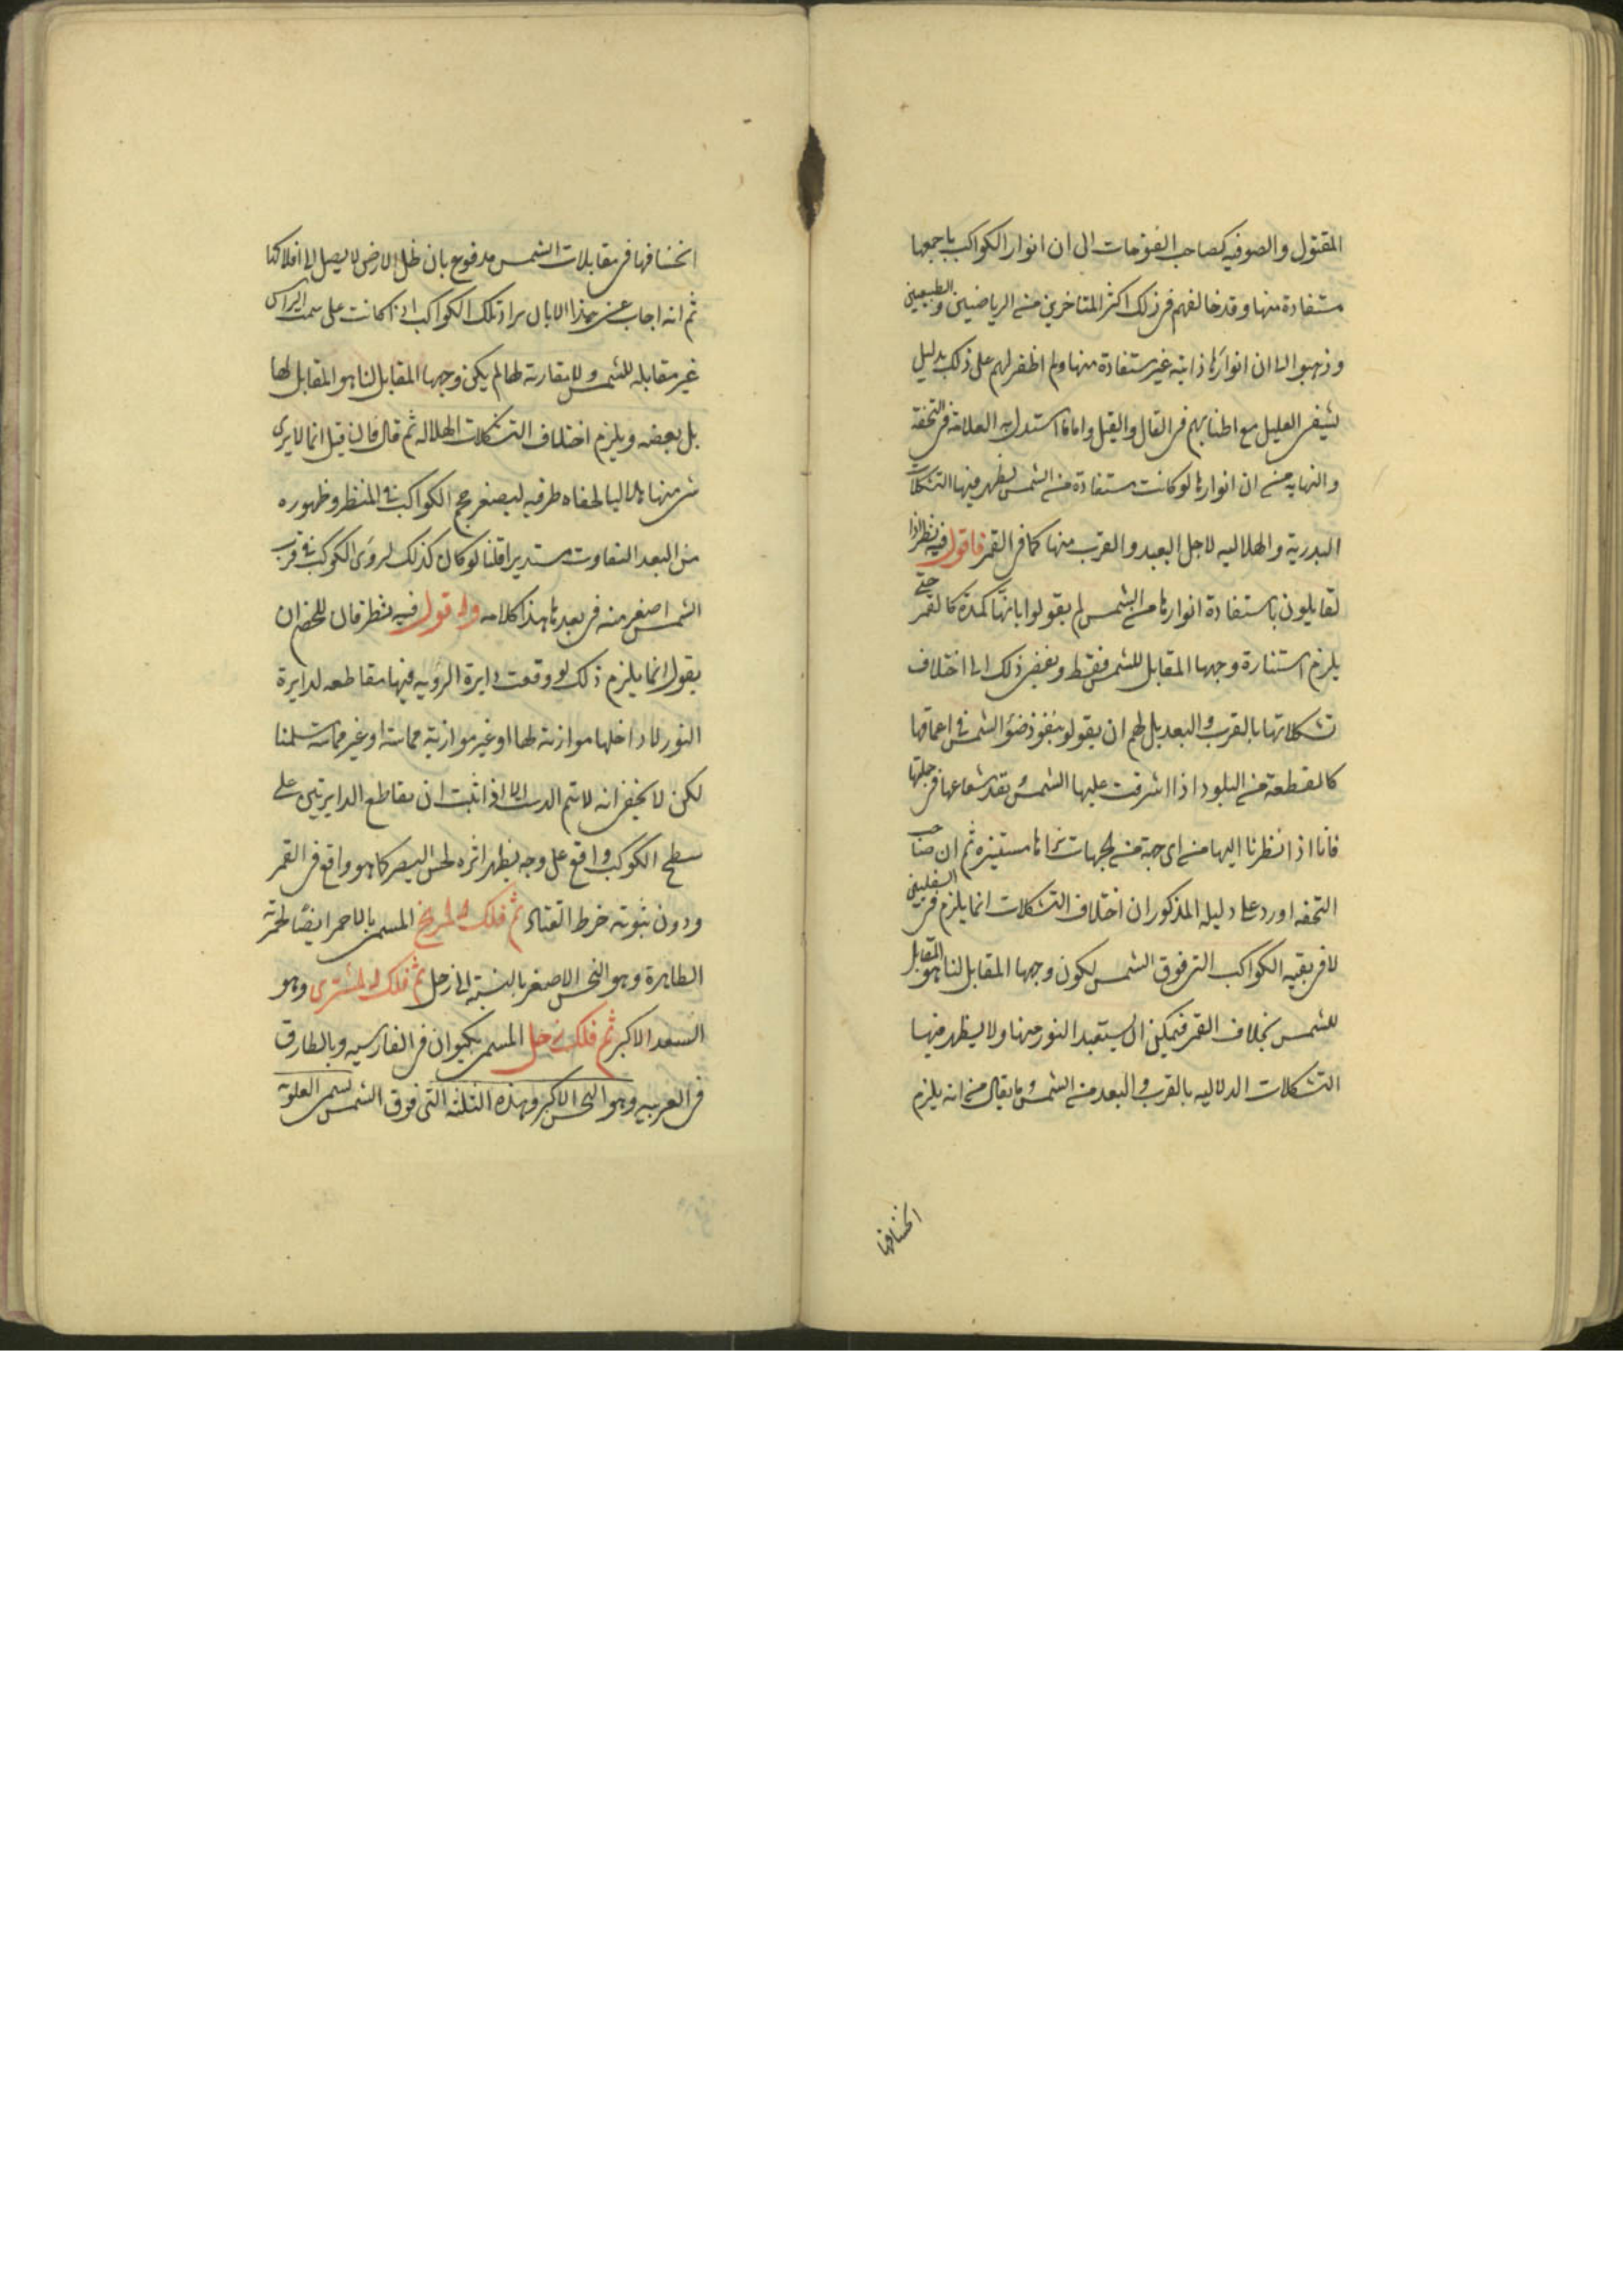 المقتول والصوفيه كصاحب الفتوحات الى ان انوار الكواكب باجمعها
مستفادة منها وقد خالفهم فى ذلك اكثر المتاخرين من الرياضيين والطبيعيين
وذهبوا الى ان انوارها ذاتيه غير مستفادة منها ولم اظفر لهم على ذلك بدليل
يشفى العليل مع اطنابهم فى القال والقيل واما ما استدل به العلامة فى التحفة
والنهايه من ان انوارها لو كانت مستفادة من الشمس لظهر فيها التشكلات
البدرية والهلاليه لاجل البعد والقرب منها كما فى القمر فاقول فيه نظر اذ
القايلون باستفادة انوارها من الشمس لم يقولوا بانها كمدة كالقمر حتى
يلزم استنارة وجهها المقابل للشمس فقط ويفضى ذلك الى اختلاف
تشكلاتها بالقرب والبعد بل لهم ان يقولو بنفوذ ضوء الشمس فى اعماقها
كالقطعة من البلور اذا اشرقت عليها الشمس ينفذ شعاعها فى جملتها
فانا اذا نظرنا اليها من اى جهة من الجهات نراها مستنيره ثم ان صاحب
التحفه اورد على دليله المذكور ان اختلاف التشكلات انما يلزم فى السفليين
لا فى بقيه الكواكب التى فوق الشمس لكون وجهها المقابل لنا هو المقابل
للشمس بخلاف القمر فيمكن ان يستفيد النور منها ولا يظهر فيها
التشكلات الهلاليه بالقرب والبعد من الشمس وما يقال من انه يلزم
انخسافها
انخسافها فى مقابلات الشمس مدفوع بان ظل الارض لا يصل الى افلاكها
ثم انه اجاب عن هذا الايراد بان تلك الكواكب اذا كانت على سمت الراس
غير مقابله للشمس ولا مقارنه لها لم يكن وجهها المقابل لنا هو المقابل لها
بل بعضه ويلزم اختلاف التشكلات الهلاليه ثم قال فان قيل انما لا يرى
شى منها هلاليا لخفاء طرفيه لصغر حجم الكواكب فى المنظر وظهوره
من البعد المتفاوت مستديرا قلنا لو كان كذلك لروى الكوكب فى قرب
الشمس اصغر منه فى بعدها هذا كلامه واقول فيه نظر فان للخصم ان
يقول انما يلزم ذلك لو وقعت دايرة الرؤيه فيها مقاطعه لدايرة
النور لا داخلها موازيه لها او غير موازيه مماسة او غير مماسة سلمنا
لكن لا يخفى انه لا يتم الدست الا اذا اثبت ان تقاطع الدايرتين على
سطح الكوكب واقع على وجه يظهر اثره لحس البصر كما هو واقع فى القمر
ودون ثبوته خرط القتاد ثم فلك المريخ المسمى بالاحمر ايضا لحمرته
الظاهرة وهو النحس الاصغر بالنسبة الى زحل ثم فلك المشترى وهو
السعد الاكبر ثم فلك زحل المسمى بكيوان فى الفارسيه وبالطارق
فى العربيه وهو النحس الاكبر وهذه الثلثه التى فوق الشمس تسمى العلويه